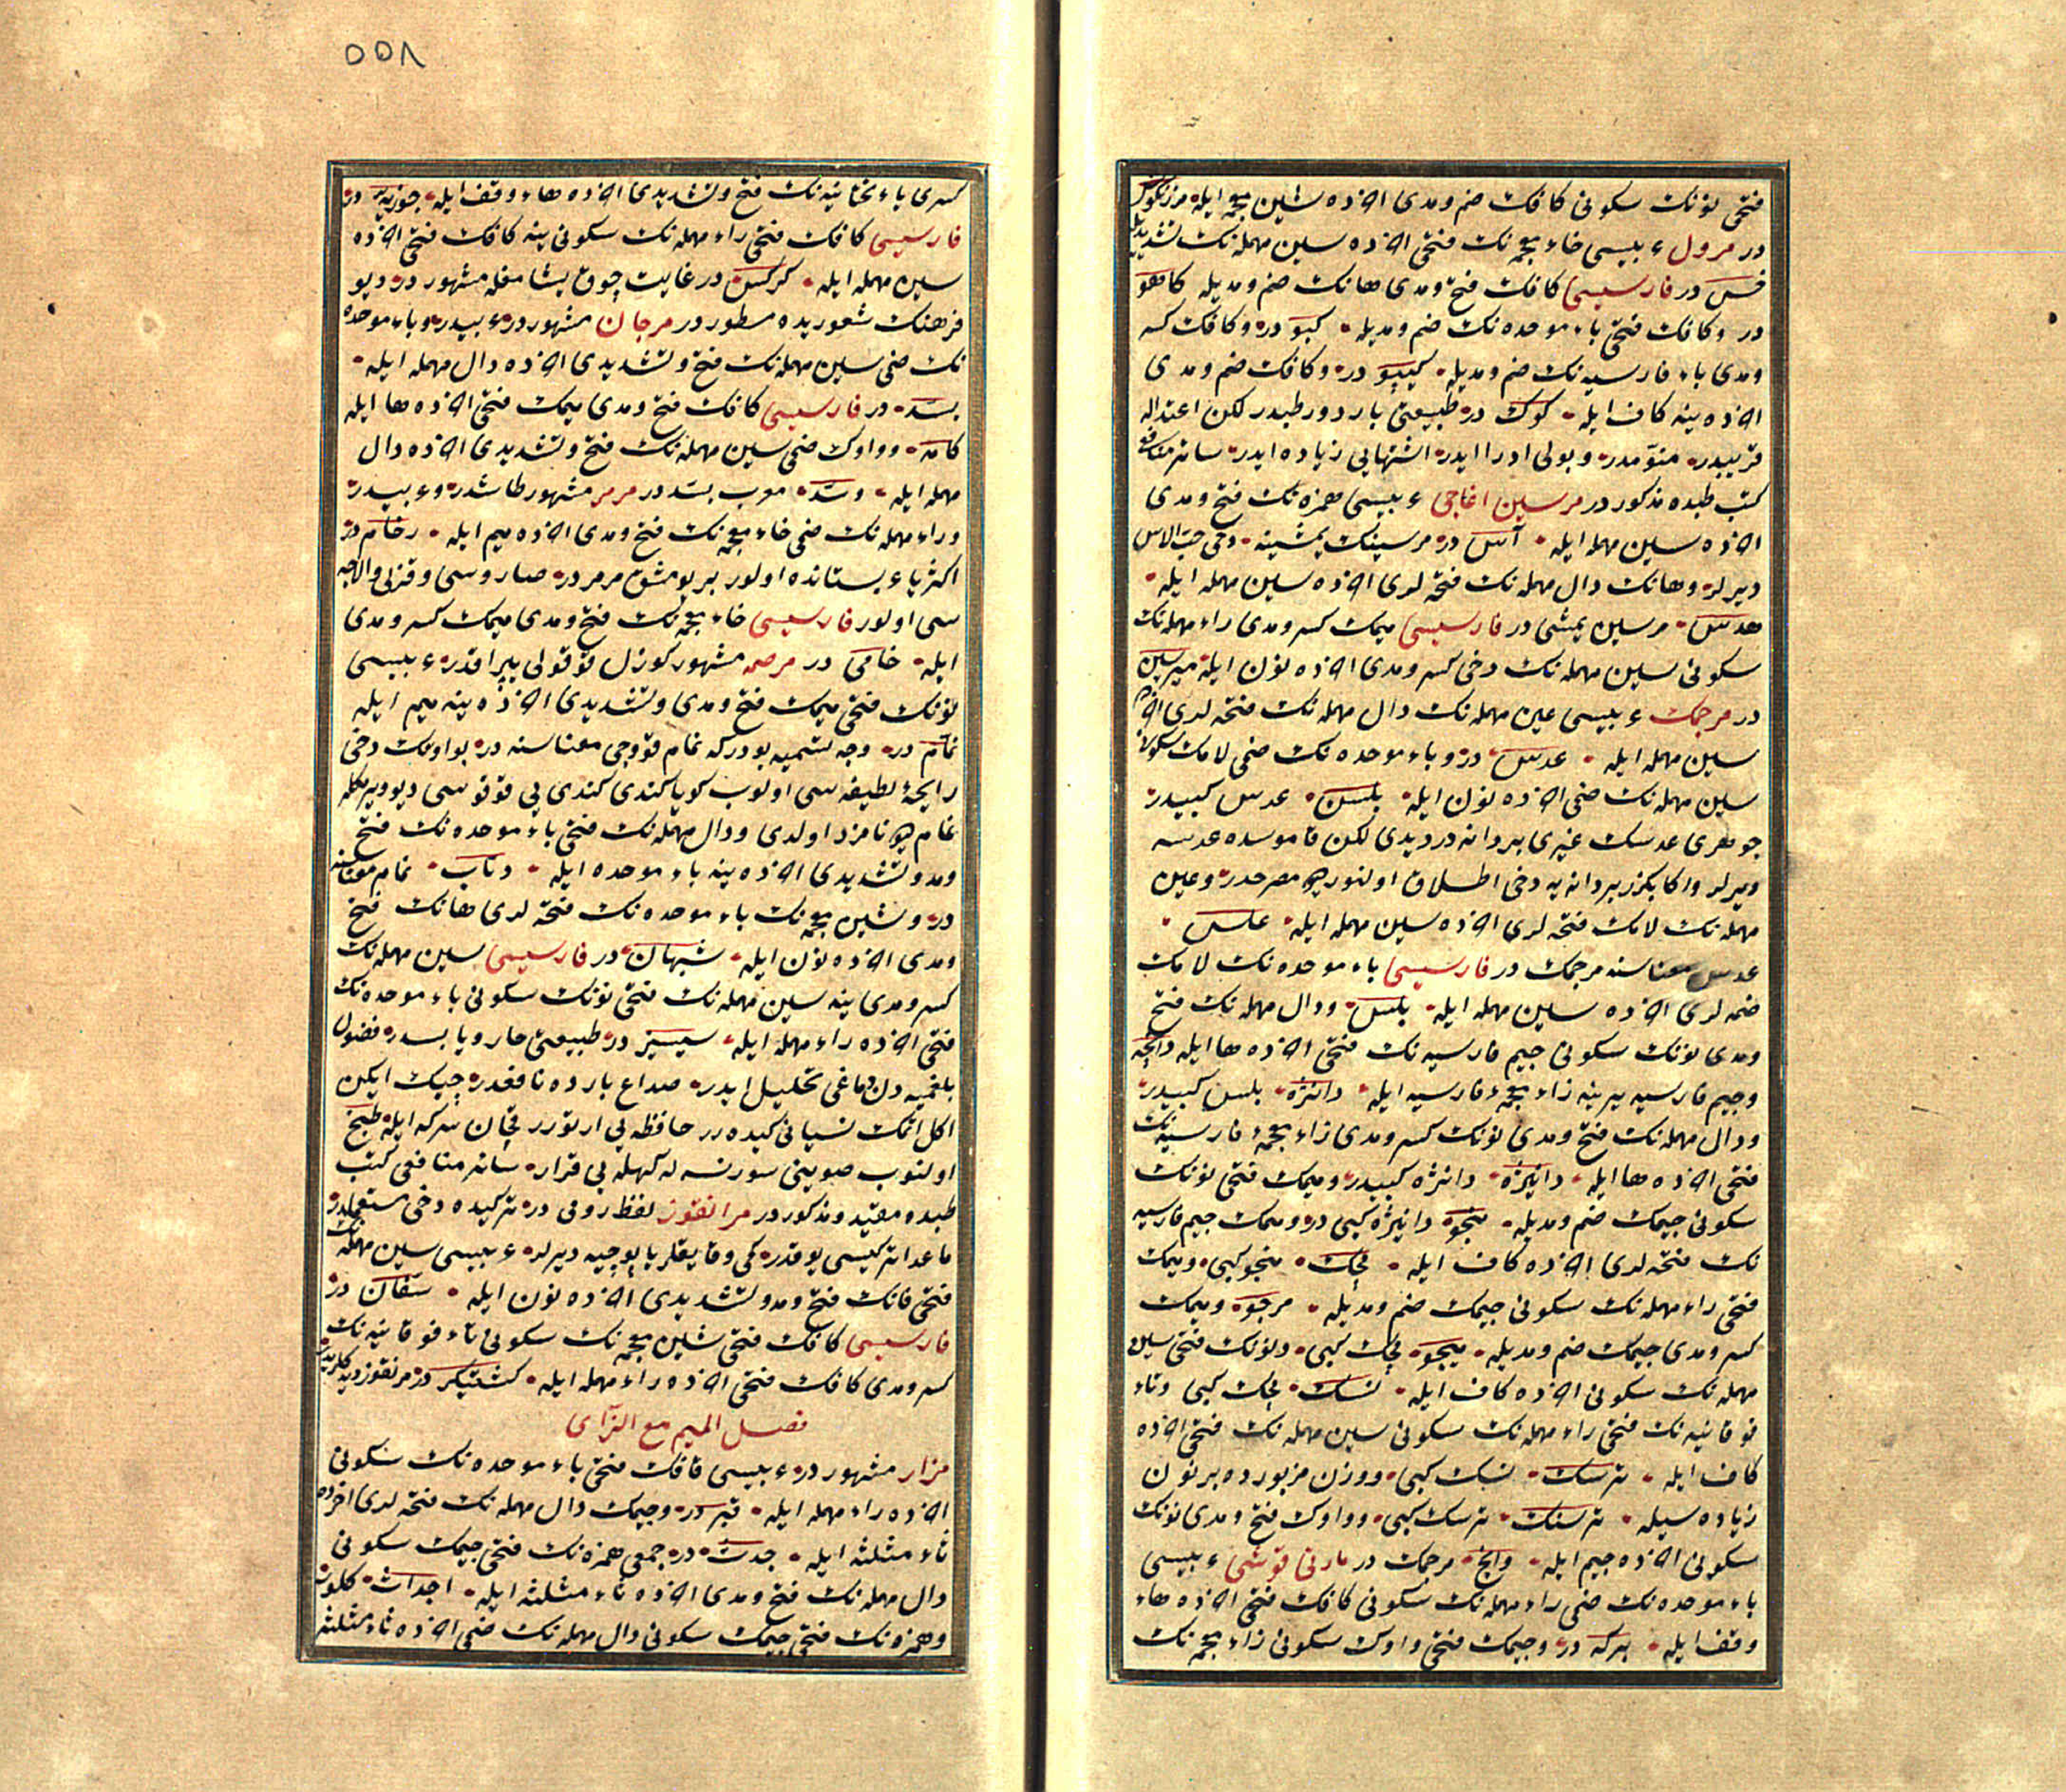 فتحی نونك سكونی كافك ضم ومدی اخرده شین معجمه ایله مرزنكوش
در مرول عربیسی خاء معجمه نك فتحی اخرده سین مهمله نك تشدیدیله
خسّ در فارسیسی كافك فتح ومدی هانك ضم ومدیله كاهو
در وكافك فتحی باء موحده نك ضم ومدیله كبو در وكافك كسر
ومدی باء فارسیه نك ضم ومدیله كیپو در وكافك ضم ومدی
اخرده ینه كاف ایله كوك در طبیعتی بارد ورطبدر لكن اعتداله
قریبدر منوّمدر وبولی ادرار ایدر اشتهایی زیاده ایدر سائر منافعی
كتب طبده مذكور در مرسین اغاجی عربیسی همزه نك فتح ومدی
اخرده سین مهمله ایله آس در مرسینك یمشینه دخی حبّ الاس
دیرلر وهانك دال مهمله نك فتحه لری اخرده سین مهمله ایله
هدس مرسین یمشی در فارسیسی میمك كسر ومدی راء مهمله نك
سكونی سین مهمله نك دخی كسر ومدی اخرده نون ایله میرسین
در مرجمك عربیسی عین مهمله نك دال مهمله نك فتحه لری اخرده
سین مهمله ایله عدس در وباء موحده نك ضمی لامك سكونی
سین مهمله نك ضمی اخرده نون ایله بلسن عدس كبیدر
جوهری عدسك غیری بر دانه در دیدی لكن قاموسده عدسه
دیرلر واكا بكزر بر دانه یه دخی اطلاق اولنور دیو مصرحدر وعین
مهمله نك لامك فتحه لری اخرده سین مهمله ایله علس
عدس معناسنه مرجمك در فارسیسی باء موحده نك لامك
ضمه لری اخرده سین مهمله ایله بلس ودال مهمله نك فتح
ومدی نونك سكونی جیم فارسیه نك فتحی اخرده ها ایله دانچه
وجیم فارسیه یرینه زاء معجمه ء فارسیه ایله دانژه بلس كبیدر
ودال مهمله نك فتح ومدی نونك كسر ومدی زاء معجمهٔ فارسیه نك
فتحی اخرده ها ایله دانیژه دانژه كبیدر ومیمك فتحی نونك
سكونی جیمك ضم ومدیله منجو دانیژه كبی در ومیمك جیم فارسیه
نك فتحه لری اخرده كاف ایله مچك منجو كبی ومیمك
فتحی راء مهمله نك سكونی جیمك ضم ومدیله مرجو ومیمك
كسر ومدی جیمك ضم ومدیله میجو مچك كبی ونونك فتحی سین
مهمله نك سكونی اخرده كاف ایله نسك مچك كبی وتاء
فوقانیه نك فتحی راء مهمله نك سكونی سین مهمله نك فتحی اخرده
كاف ایله ترسك نسك كبی ووزن مزبورده بر نون
زیاده سیله ترسنك ترسك كبی وواوك فتح ومدی نونك
سكونی اخرده جیم ایله وانج مرجمك در مارتی قوشی عربیسی
باء موحده نك ضمی راء مهمله نك سكونی كافك فتحی اخرده هاء
وقف ایله بركه در وجیمك فتحی واوك سكونی زاء معجمه نك
٥٥٨
كسری یاء تحتانیه نك فتح وتشدیدی اخرده هاء وقف ایله جوزیّه در
فارسیسی كافك فتحی راء مهمله نك سكونی ینه كافك فتحی اخرده
سین مهمله ایله كركس در غایت چوق یشامغله مشهور در دیو
فرهنك شعوریده مسطور در مرجان مشهور در عربیدر وباء موحده
نك ضمی سین مهمله نك فتح وتشدیدی اخرده دال مهمله ایله
بسّد در فارسیسی كافك فتح ومدی میمك فتحی اخرده ها ایله
كامه وواوك ضمی سین مهمله نك فتح وتشدیدی اخرده دال
مهمله ایله وسّد معرب بسّد در مرمر مشهور طاشدر وعربیدر
وراء مهمله نك ضمی خاء معجمه نك فتح ومدی اخرده میم ایله رخام در
اكثریا عربستانده اولور بر یومشق مرمر در صاروسی وقزلی والاجه
سی اولور فارسیسی خاء معجمه نك فتح ومدی میمك كسر ومدی
ایله خامی در مرصه مشهور كوزل قوقولی یپراقدر عربیسی
نونك فتحی میمك فتح ومدی وتشدیدی اخرده ینه میم ایله
نمّام در وجه تسمیه بودر كه نمام قووجی معناسنه در بو اوتك دخی
رایحهٔ لطیفه سی اولوب كویا كندی كندی یی قوقوسی دیوویرمكله
نمام دیو نامزد اولدی ودال مهمله نك فتحی باء موحده نك فتح
ومد وتشدیدی اخرده ینه باء موحده ایله دبّاب نمام معناسنه
در وشین معجمه نك باء موحده نك فتحه لری هانك فتح
ومدی اخرده نون ایله شبهان در فارسیسی سین مهمله نك
كسر ومدی ینه سین مهمله نك فتحی نونك سكونی باء موحده نك
فتحی اخرده راء مهمله ایله سیسنبر در طبیعتی حار ویابسدر فضول
بلغمیه دن دماغی تحلیل ایدر صداع بارده نافعدر چیك ایكن
اكل اتمك نسیانی كیده رر حافظه یی ارتورر قچان سركه ایله طبخ
اولنوب صویینی سورنسه له كهله یی قرار سائر منافعی كتب
طبده مقید ومذكور در مرانقوز لفظ رومی در تركیده دخی مستعملدر
ماعدا تركیسی یوقدر كمی وقایقلر یاپوجیه دیرلر عربیسی سین مهمله نك
فتحی فانك فتح ومد وتشدیدی اخرده نون ایله سفّان در
فارسیسی كافك فتحی شین معجمه نك سكونی تاء فوقانیه نك
كسر ومدی كافك فتحی اخرده راء مهمله ایله كشتیكر در مرنقوز دیدكلریدر
فصل المیم مع الزّای
مزار مشهور در عربیسی قافك فتحی باء موحده نك سكونی
اخرده راء مهمله ایله قبر در وجیمك دال مهمله نك فتحه لری اخرده
ثاء مثلثه ایله جدث در جمعی همزه نك فتحی جیمك سكونی
دال مهمله نك فتح ومدی اخرده ثاء مثلثه ایله اجداث كلور
وهمزه نك فتحی جیمك سكونی دال مهمله نك ضمی اخرده ثاء مثلثه